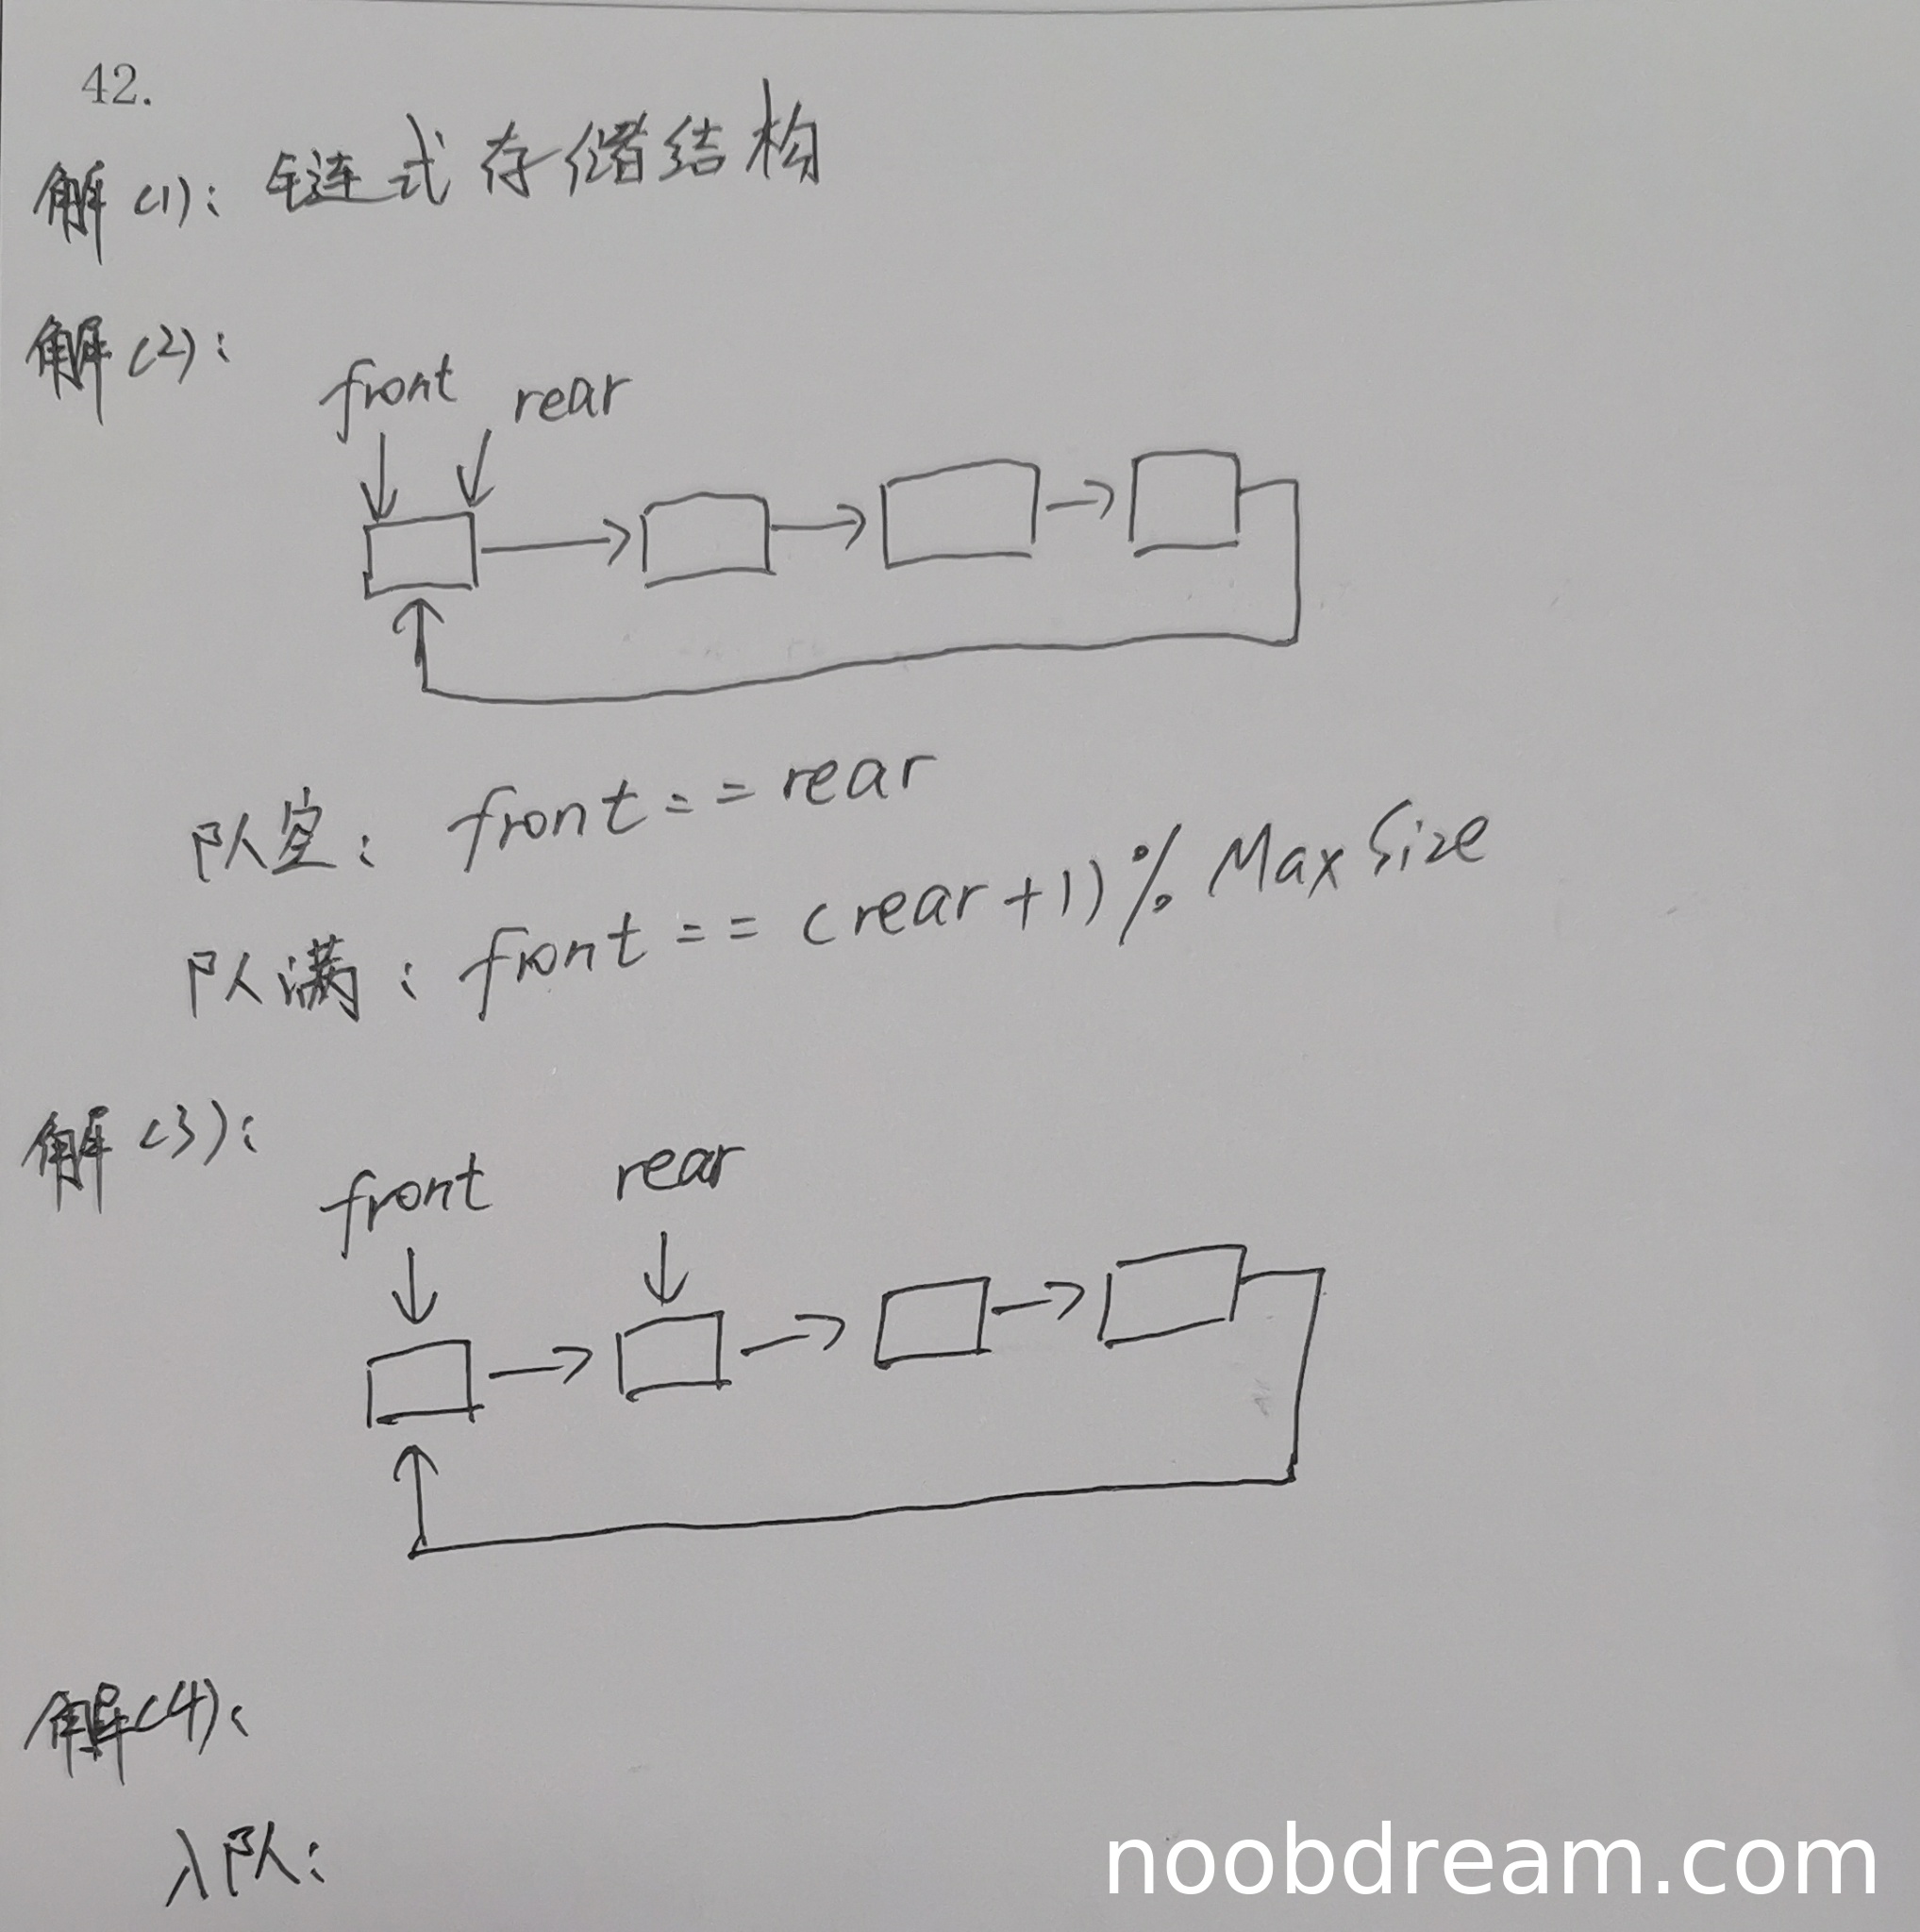 42.
解(1): 链式存储结构
解(2):
front rear
队空: front == rear
队满: front == (rear+1)% MaxSize
解(3):
front rear
解(4):
入队:
noobdream.com